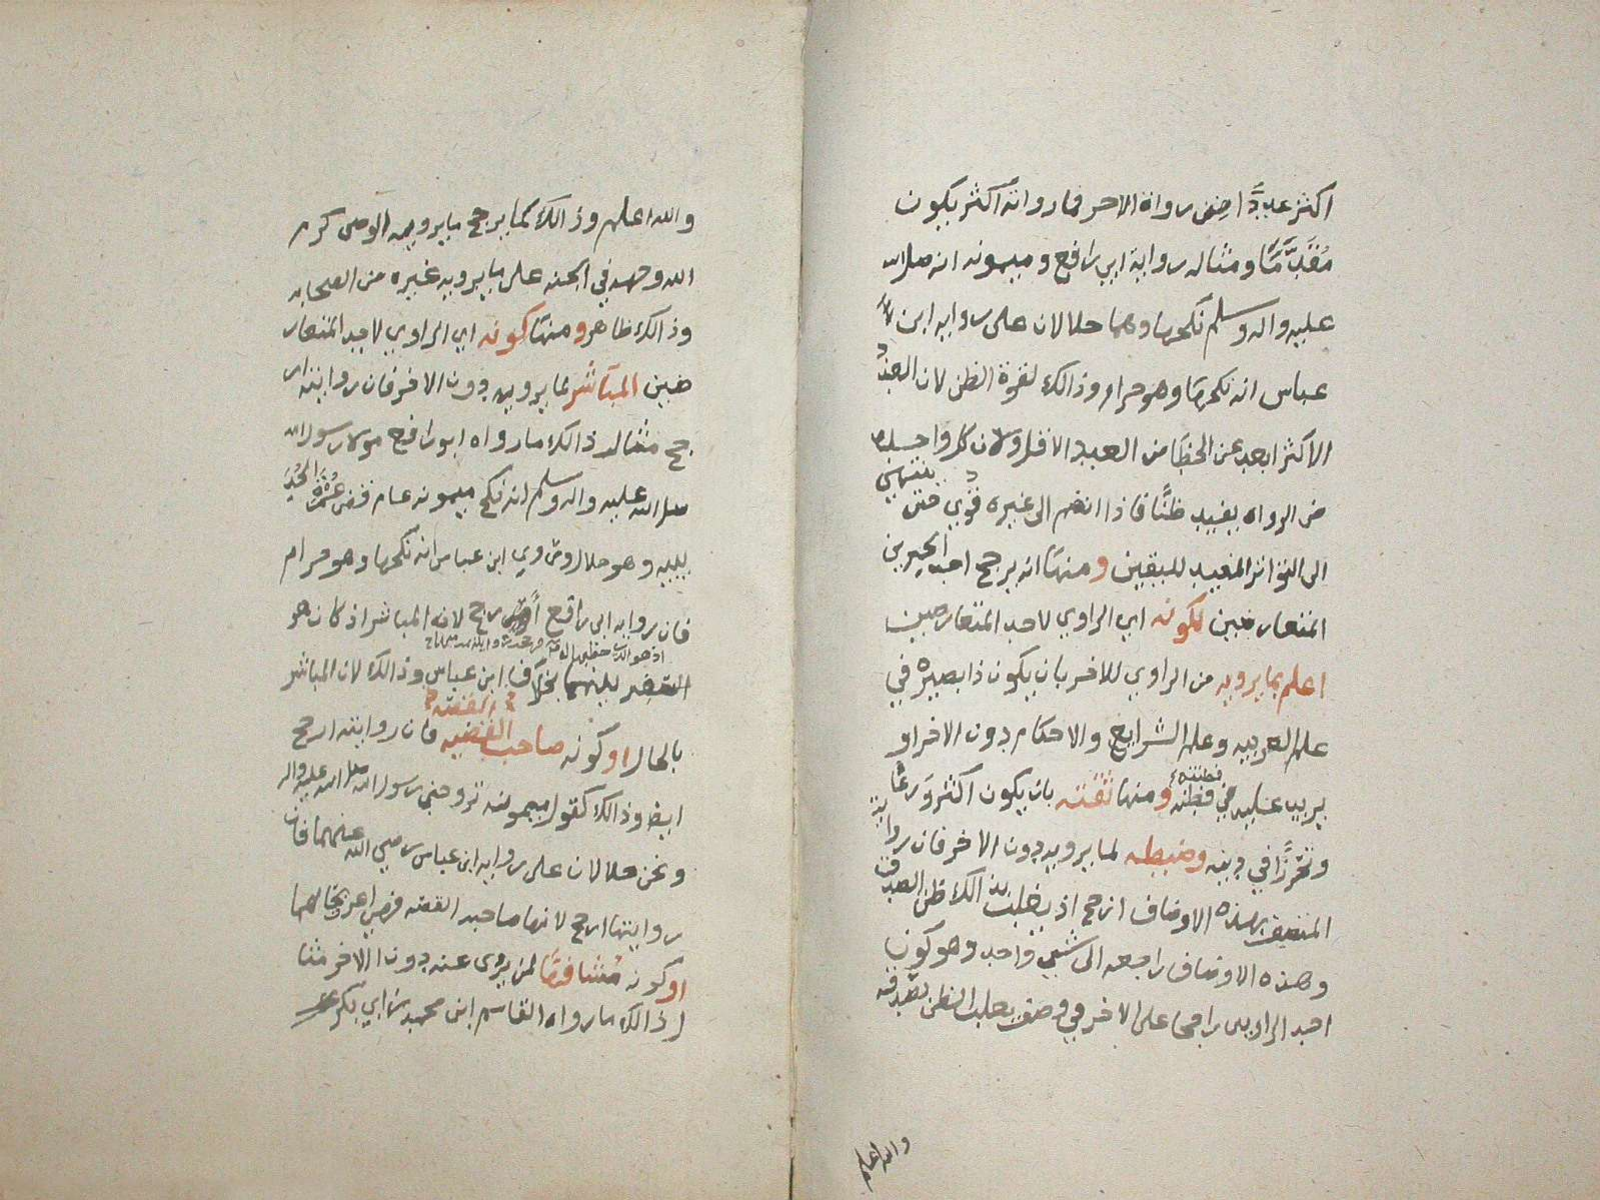 اكثر عددًا من رواة الاخر فما رواته اكثر يكون
مُقَدَّمًا ومثاله رواية ابي رافع وميمونه انه صلى الله
عليه واله وسلم نكحها وهما حلالان على روايه ابن
عباس انه نكحها وهو حرام وذالك لقوة الظن لان العدد
الاكثر ابعد عن الخطا من العدد الاقل ولان كل واحد
من الرواه يفيد ظنًا فاذا انضم الى غيره قوي حتى ينتهي
الى التواتر المفيد لليقين ومنها انه يرجح احد الخبرين
المتعارضين لكونه اي الراوي لاحد المتعارضين
اعلم بما يرويه من الراوي للاخر بان يكون ذا بصيره في
علم العربيه وعلم الشرايع والاحكام دون الاخر او
يزيد عليه في فطنته ومنها ثقته بان يكون اكثر ورعًا
وتحرزًا في دينه وضبطه لما يرويه دون الاخر فان رواية
المتصف بهذه الاوصاف ارجح اذ يغلب بذالك ظن الصدق
وهذه الاوصاف راجعه الى شيي واحد وهو كون
احد الراويين راجحا على الاخر في وصف يغلب الظن بصدقه
والله اعلم
والله اعلم وذالك كما يرجح ما يرويه الوصي كرم
الله وجهه في الجنه على ما يرويه غيره من الصحابه
وذالك ظاهر ومنها كونه اي الراوي لاحد المتعار
ضين المباشر لما يرويه دون الاخر فان روايته ار
جح مثاله ذالك ما رواه ابو رافع مولا رسول الله
صلى الله عليه واله وسلم انه نكح ميمونه عام عُمْرة
وهو حلال وروي ابن عباس انه نكحها وهو حرام
فان روايه ابي رافع ارجح لانه المباشر اذ كان هو
السفير بينهما بخلاف ابن عباس وذالك لان المباشر
بالحال او كونه صاحب القضيه القصه فان روايته ارجح
ايضا وذالك كقول ميمونه تزوجني رسول الله صلى الله عليه واله
ونحن حلالان على روايه ابن عباس رضي الله عنهما فان
روايتها ارجح لانها صاحبه القصه فهي اعرف بحالهما
او كونه مُشافهًا لمن روى عنه دون الاخر مثا
ل ذالك ما رواه القاسم ابن محمد بن ابي بكر